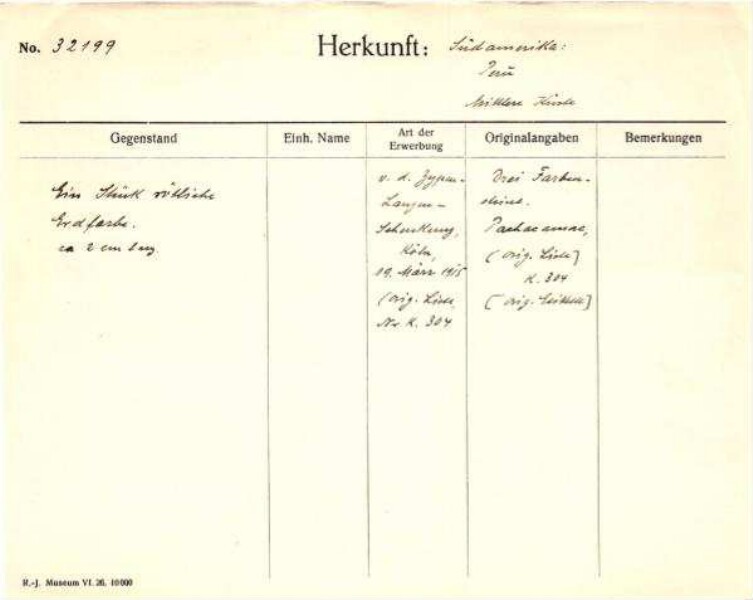 No. 32199
Herkunft: Südamerika:
Peru
Mittlere Küste
Gegenstand
Einh. Name
Art der
Erwerbung
Originalangaben
Bemerkungen
Ein Stück rötliche
Erdfarbe.
ca 2 cm lang.
v. d. Zypen-
Langen-
Schenkung,
Köln,
19. März 1915
(orig. Liste,
Nr. K. 304
Drei Farben-
steine.
Pachacamac,
(orig. Liste]
K. 304
[orig.
R.-J. Museum VI. 26. 10000